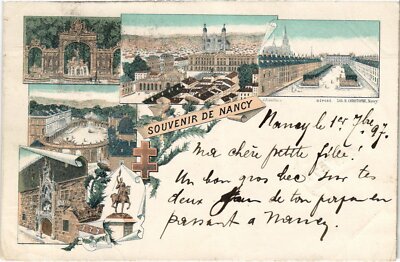 SOUVENIR DE NANCY
Nancy le 1er 7bre 97.
Ma chère petite fille!
Un bon gros bec sur tes
deux de ton papa en
passant à Nancy.